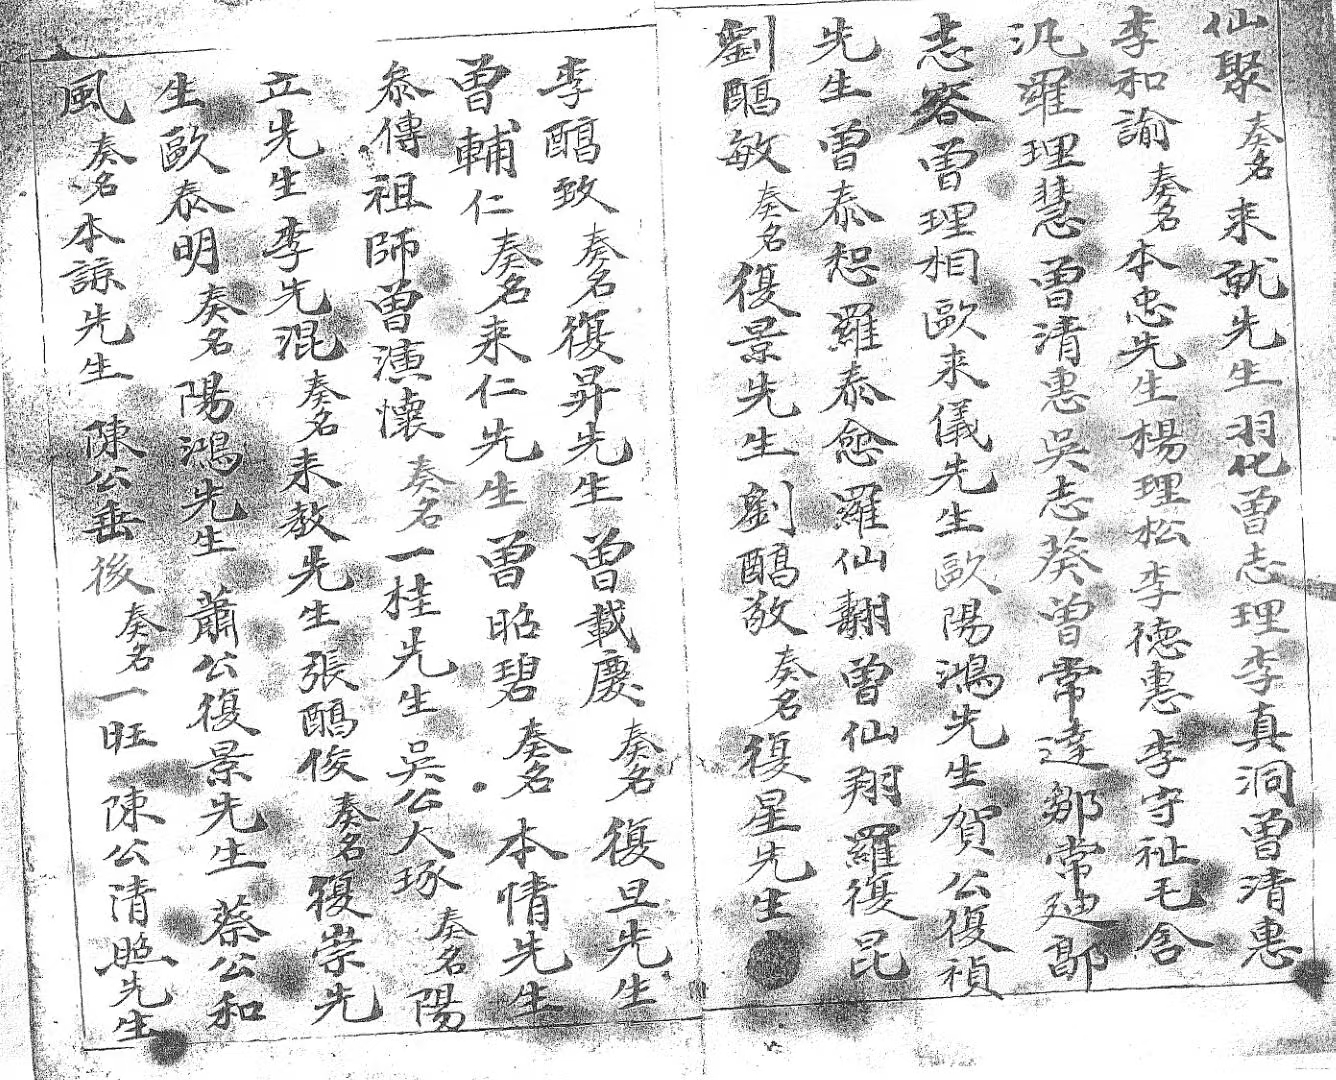 仙聚奏名来就先生羽化曾志理李真洞曾清惠
李和諭奏名本忠先生楊理松李德惠李守祉毛含
汎羅理慧曾清惠吳志葵曾常達鄒常廸鄒
志容曾理相歐来儀先生歐陽鴻先生賀公復禎
先生曾泰恕羅泰愈羅仙翻曾仙翔羅復昆
劉醕敏奏名復景先生劉醕敬奏名復星先生
李醕致奏名復昇先生曾載慶奏名復旦先生
曾輔仁奏名来仁先生曾昭碧奏名本情先生
叅傳祖師曾演懷奏名一桂先生吳公大琢奏名陽
立先生李先混奏名来教先生張醕俊奏名復崇先
生歐泰明奏名陽鴻先生蕭公復景先生蔡公和
風奏名本諒先生陳公垂後奏名一旺陳公清照先生